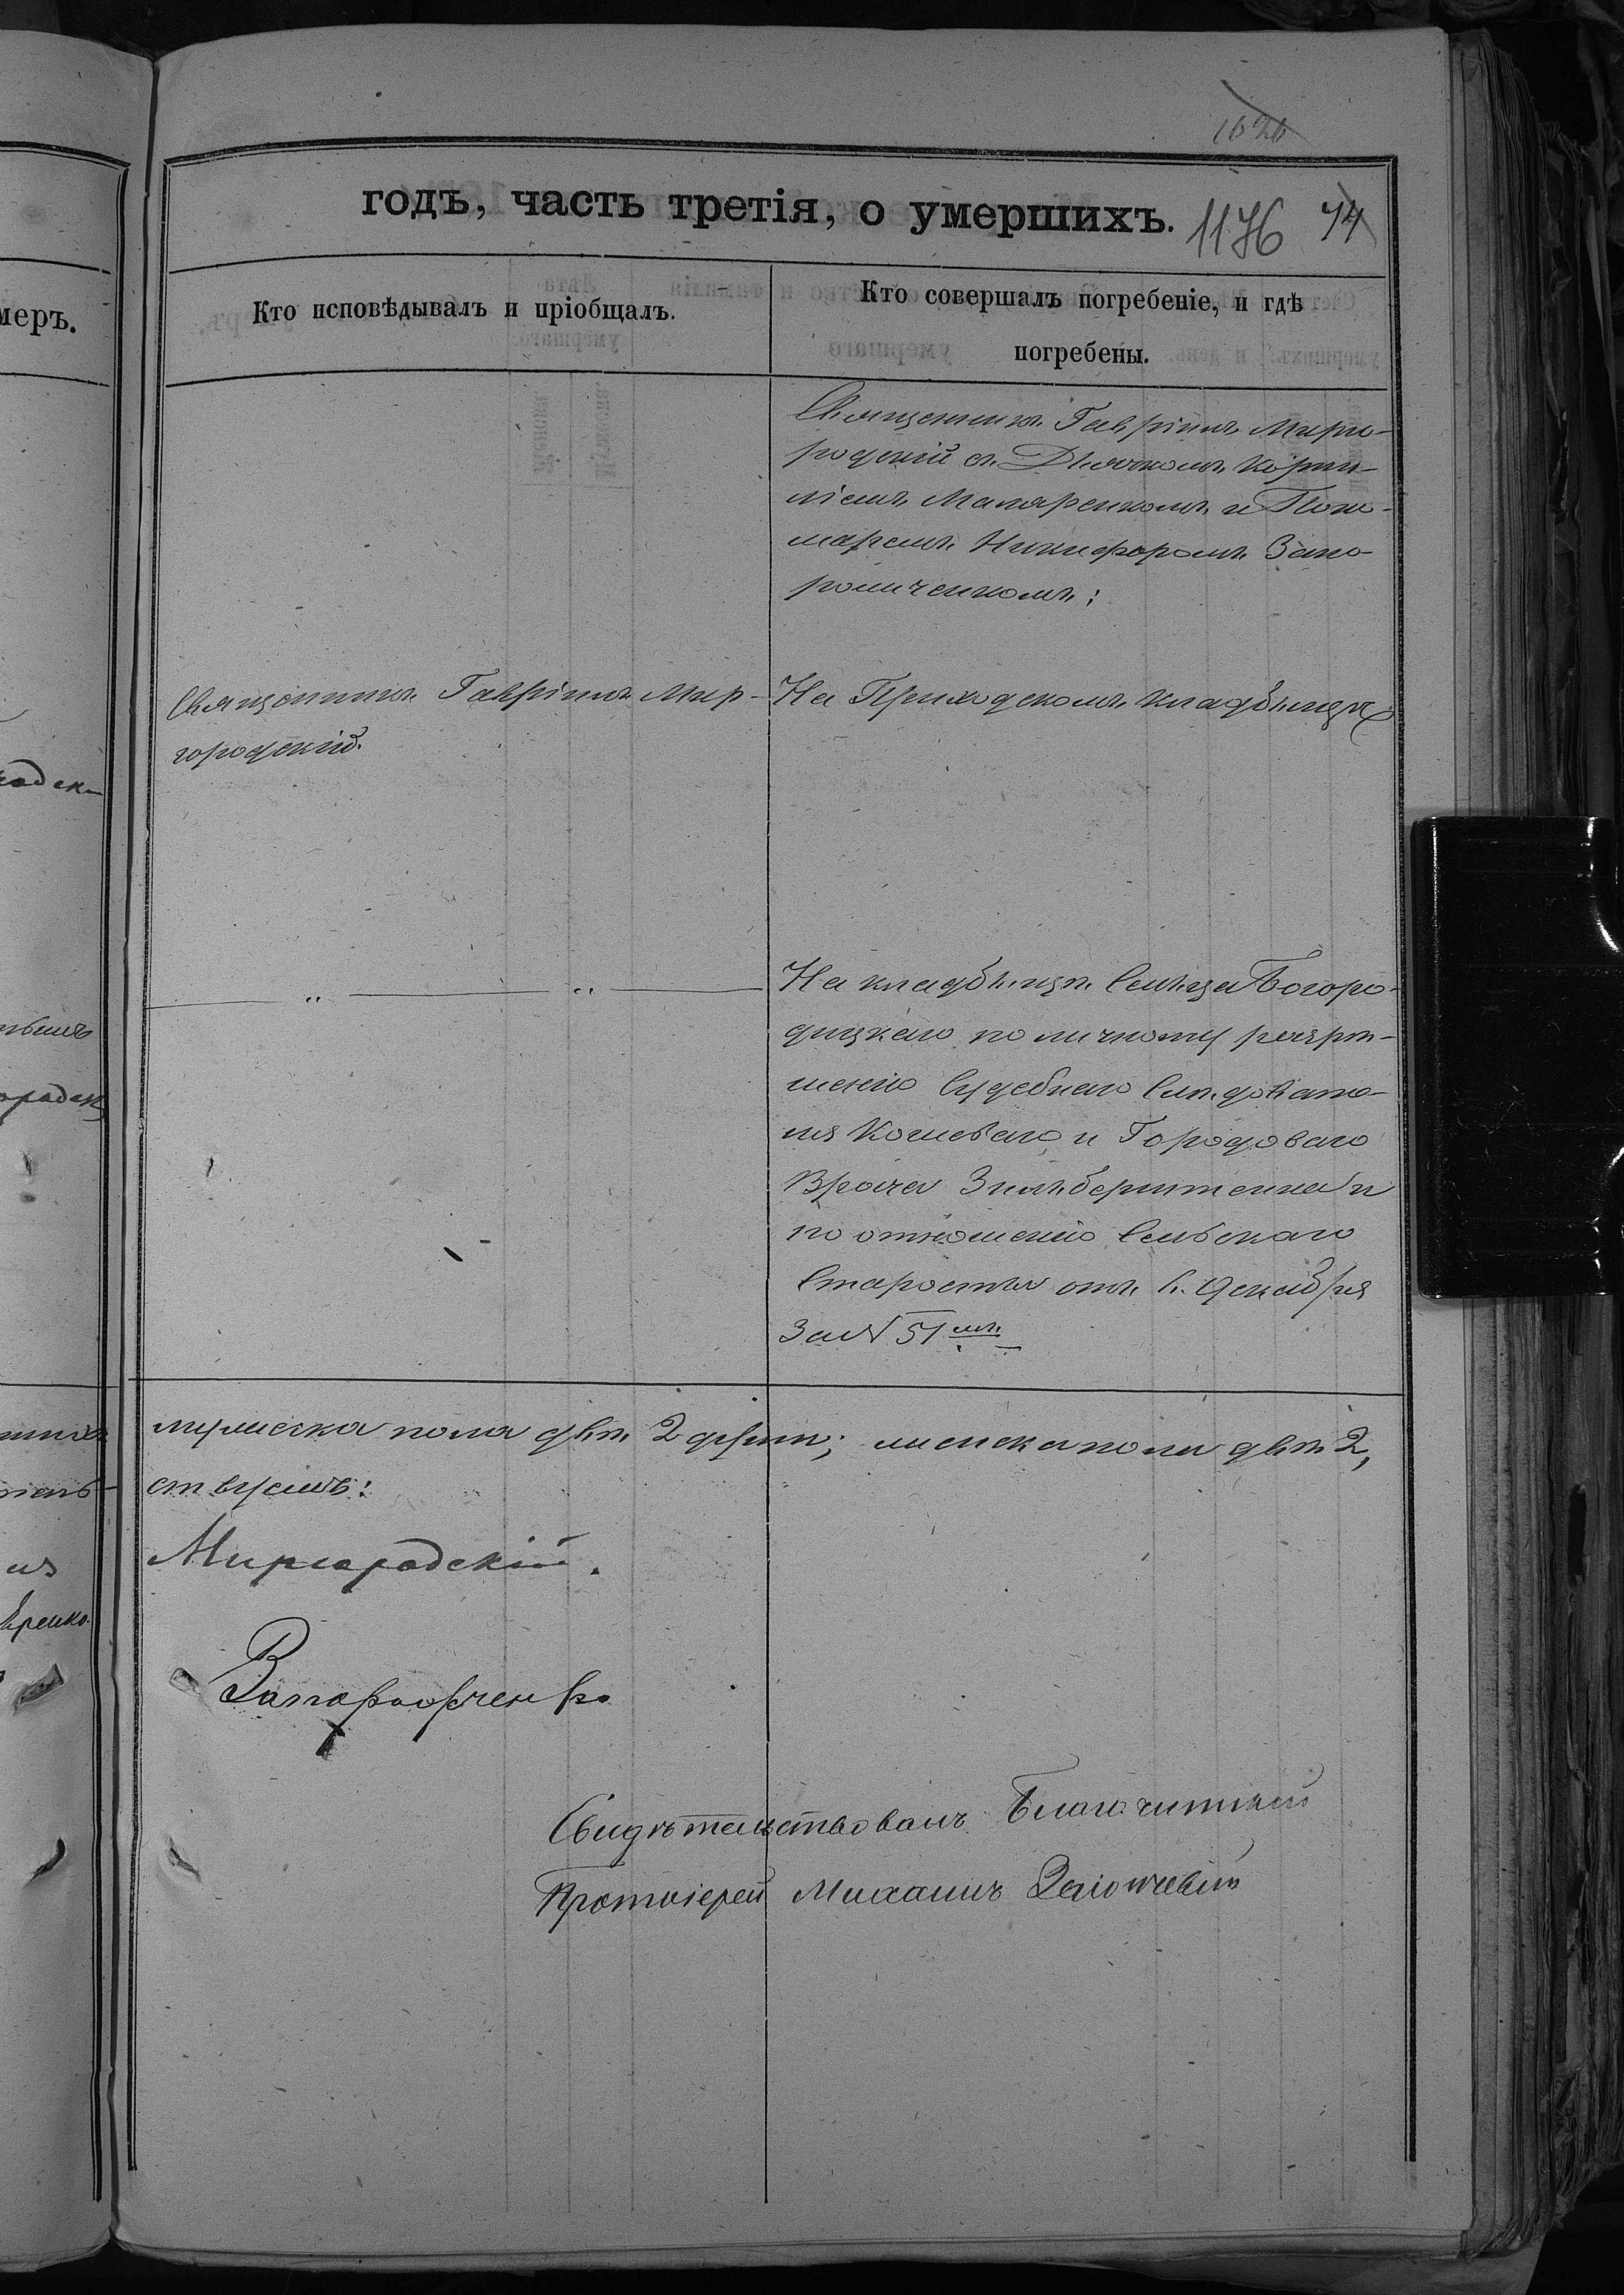 1626
годъ, часть третія, о умершихъ. 1176 74
Кто исповѣдывалъ и пріобщалъ.
Кто совершалъ погребеніе, и гдѣ
погребены.
Священникъ Гавріилъ Мирго-
родскій съ Дьячкомъ Корни-
ліемъ Макаренкомъ и Поно-
маремъ Никифоромъ Запо-
рожченкомъ:
Священникъ Гавріилъ Мир-
городскій.
На Приходскомъ кладбищѣ
" "
На кладбищѣ Сельца Богоро-
дицкаго по личному разрѣ-
шенію Судебнаго Слѣдовате-
ля Кошеваго и Городоваго
Врача Зильберштейна и
по отношенію Сельскаго
Старосты отъ 6. Декабря
За № 51 мъ
мужеска пола двѣ 2 души; женска пола двѣ 2,
ствуемъ:
Миргородскій.
Запорожченко
Свидѣтельствовалъ Благочинный
Протоіерей Михаилъ
меръ.